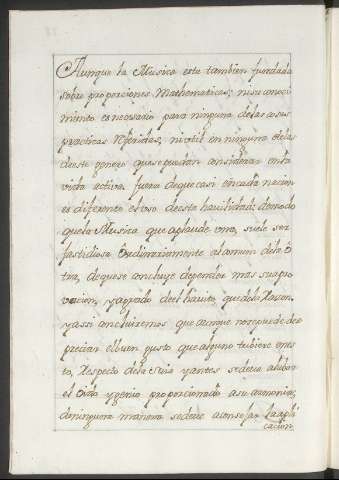 Aunque la Musica este tambien fundada
sobre proporciones Mathematicas; ni su conoci
miento es necesario para ninguna delas cosas
practicas referidas; ni util en ninguna delas
deeste genero que se puedan considerar en la
vida activa fuera de que casi en cada nacion
es diferente el uso de esta havilidad; de modo
que la Musica que aplaude una, suele ser
fastidiosa ordinariamente al comun dela o
tra, de que se concluye depender mas su apro
vacion, y agrado del havito, que dela razon,
y assi concluiremos que aunque no se puede des
preciar el buen gusto que alguno tubiere en es
to, respecto de la y antes se deve alabar
el oido y genio proporcionado a su armonia;
de ninguna manera se deve aconsejar la apli
cacion